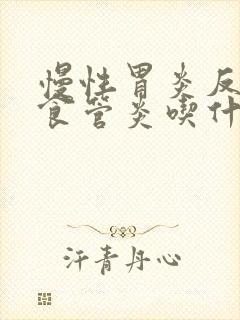 慢性胃炎反
食管炎喫什
汗青丹心